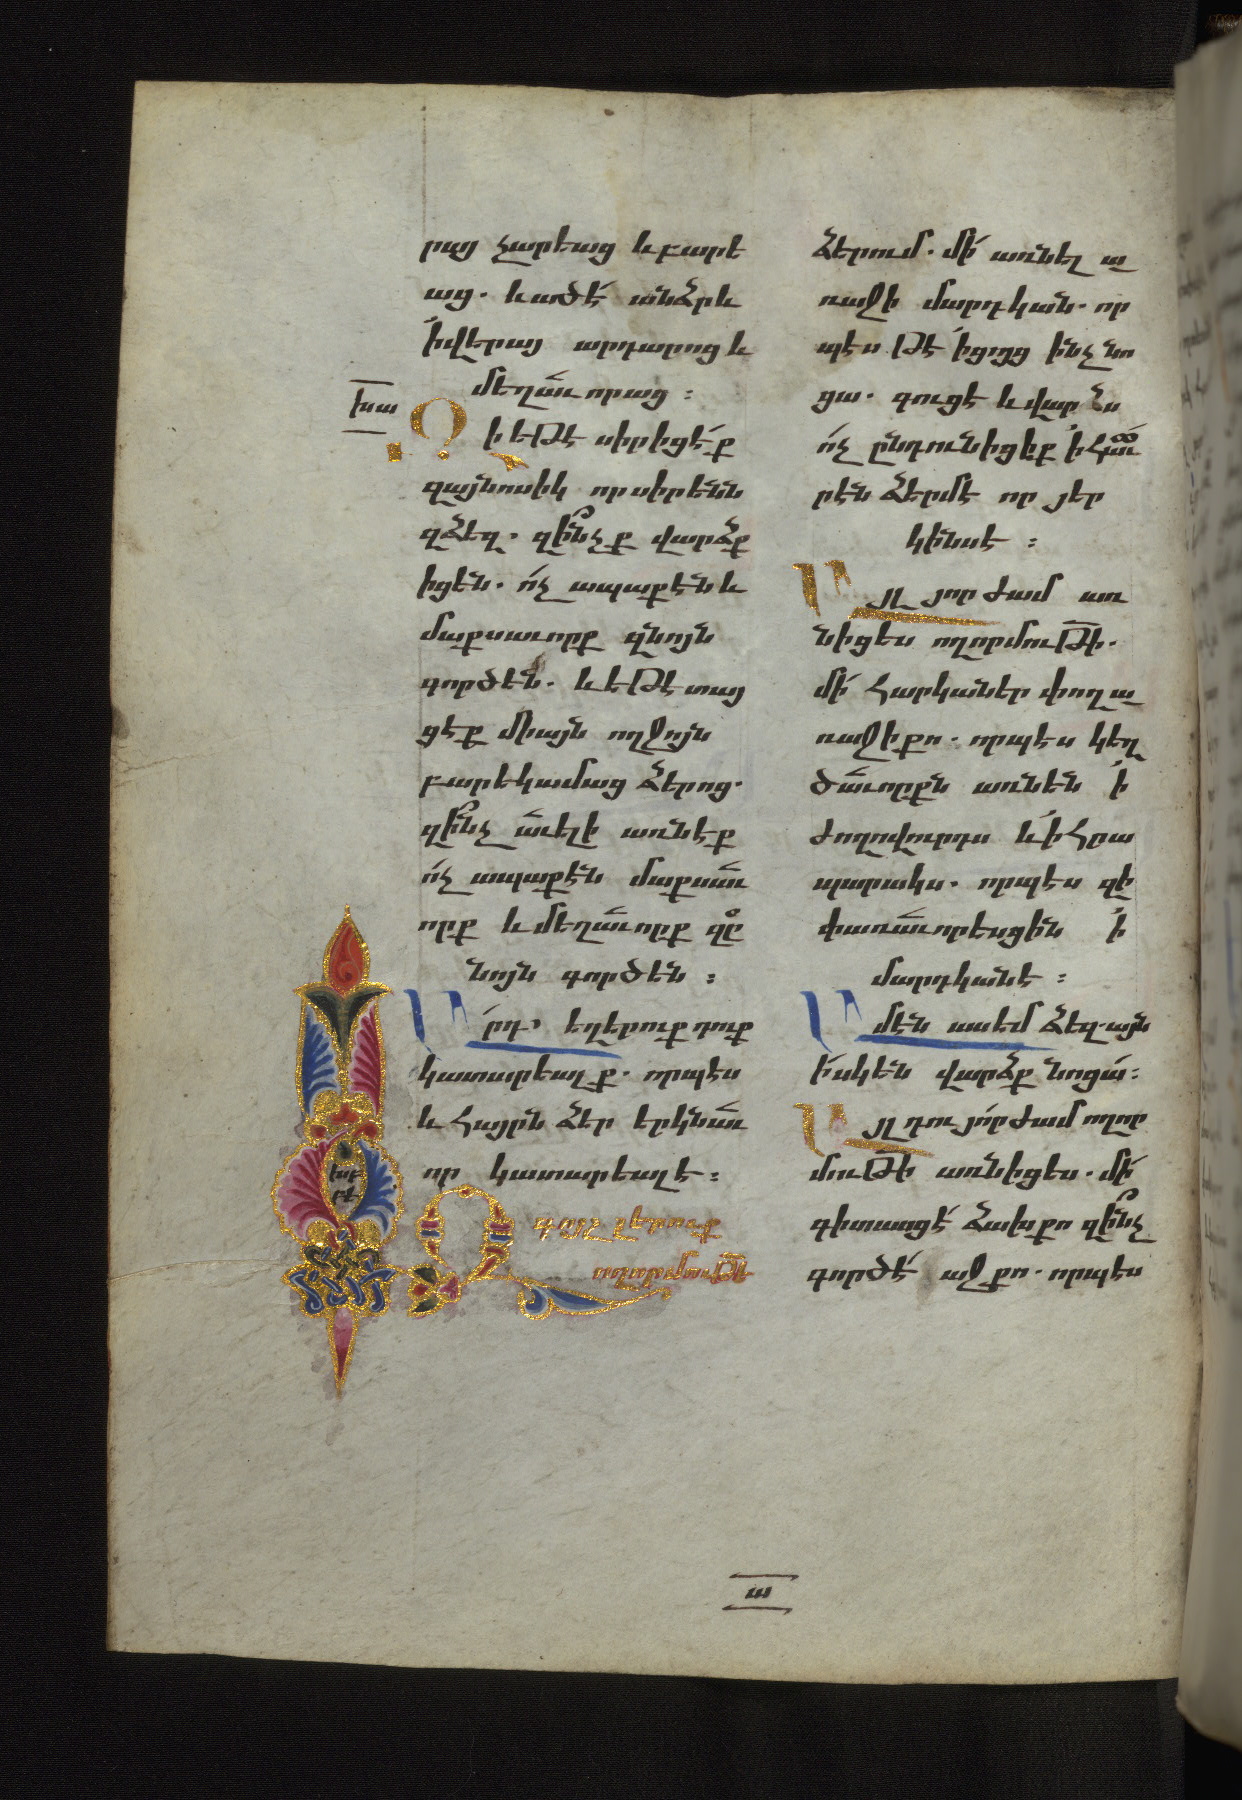 րայ չարեաց և բարե
աց. և ածէ անձրև
ի վերայ արդարոց և
մեղաւորաց :
խա
Զի եթէ սիրիցէք
զայնոսիկ որ սիրենն
զձեզ. զինչ ք վարձք
իցեն. ոչ ապաքէն և
մաքսաւորք զնոյն
գործեն. և եթէ տայ
ցէք միայն ողջոյն
բարեկամաց ձերոց.
զինչ աւելի առնէք
ոչ ապաքէն մաքսաւ
որք և մեղաւորք զը
նոյն գործեն :
Արդ՝ եղերուք դուք
կատարեալ ք. որպէս
և Հայրն ձեր երկնաւ
որ կատարեալ է :
խբ
Զգոյշ լերուք
ձերում. մի առնել ա
ռաջի մարդկան. որ
պէս թէ ի ցոյց ինչ նո
ցա. գուցէ և վարձս
ոչ ընդունիցիք ի հաւ
րէն ձերմէ որ յեր
կինս է :
Այլ յորժամ առ
նիցես ողորմութի.
մի հարկաներ փող ա
ռաջի քո. որպէս կեղ
ծաւորքն առնեն ի
ժողովուրդս և ի հրա
պարակս. որպէս զի
փառաւորեսցին ի
մարդկանէ :
Ամէն ասեմ ձեզ. այն
իսկ են վարձք նոցա :
Այլ դու յորժամ ողոր
մութի առնիցես. մի
գիտասցէ ձախ քո զինչ
գործէ աջ քո. որպէս
ա